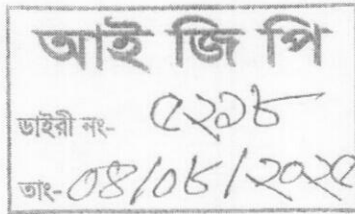 আই জি পি
ডাইরী নং- ৫২১৮
তাং- ০৪/০৮/২০২৫